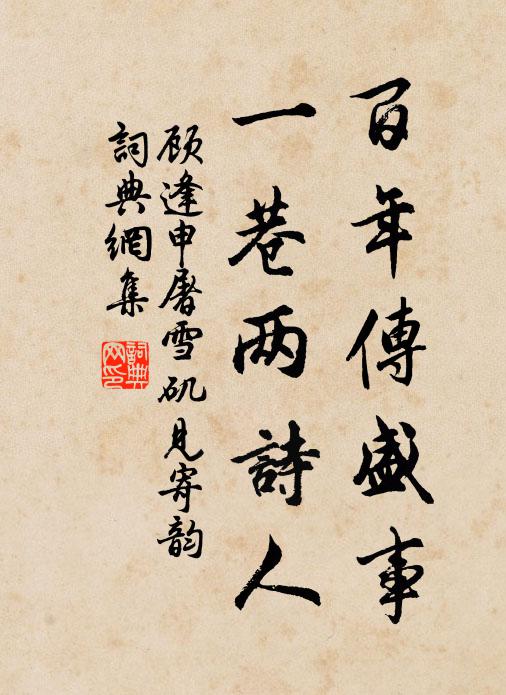 百年傳盛事
一巷两詩人
顾逢申屠雪矶見寄韵
詞典網集
詞典網印